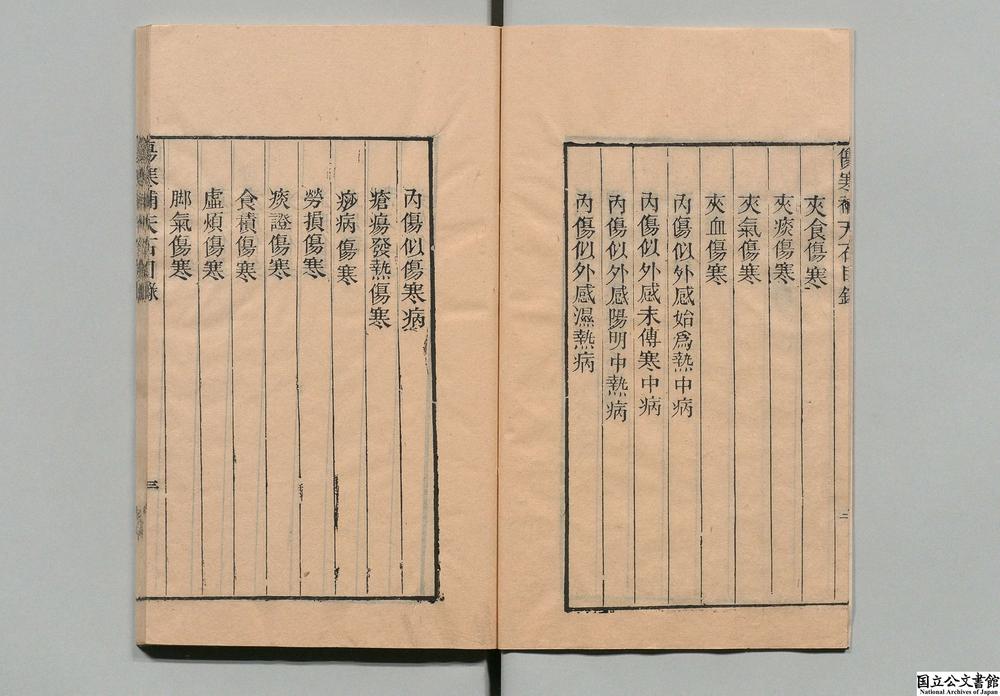 傷寒補天石目錄
夾食傷寒
夾痰傷寒
夾氣傷寒
夾血傷寒
內傷似外感始爲熱中病
內傷似外感末傳寒中病
內傷似外感陽明中熱病
內傷似外感濕熱病
二
內傷似傷寒病
瘡瘍發熱傷寒
痧病傷寒
勞損傷寒
痰證傷寒
食積傷寒
虛煩傷寒
脚氣傷寒
傷寒補天石目錄
三
国立公文書館
National Archives of Japan